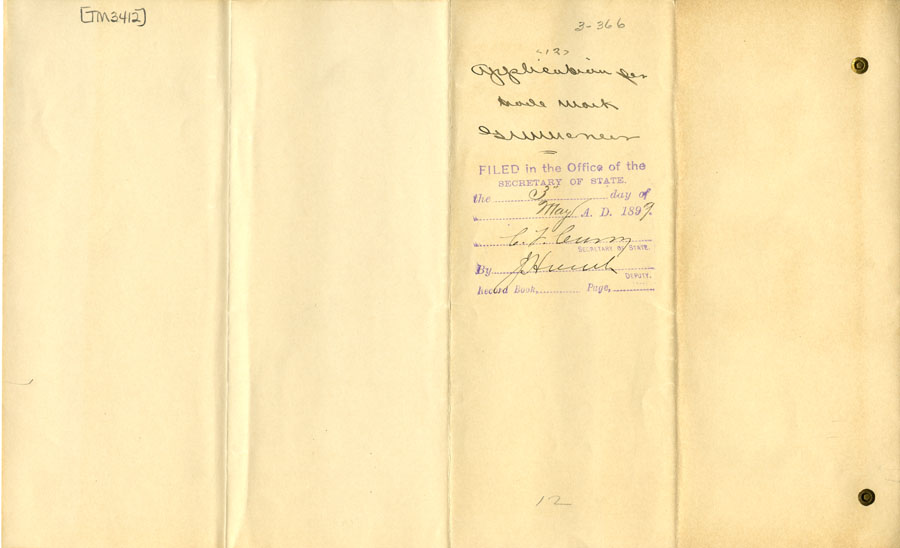 [TM3412]
3-366
"12"
Application for
trade mark
FILED in the Office of the
SECRETARY OF STATE.
the 3 day of
May A. D. 1899.
C. F. Curry
SECRETARY OF STATE.
By
DEPUTY.
Record Book, Page,
12